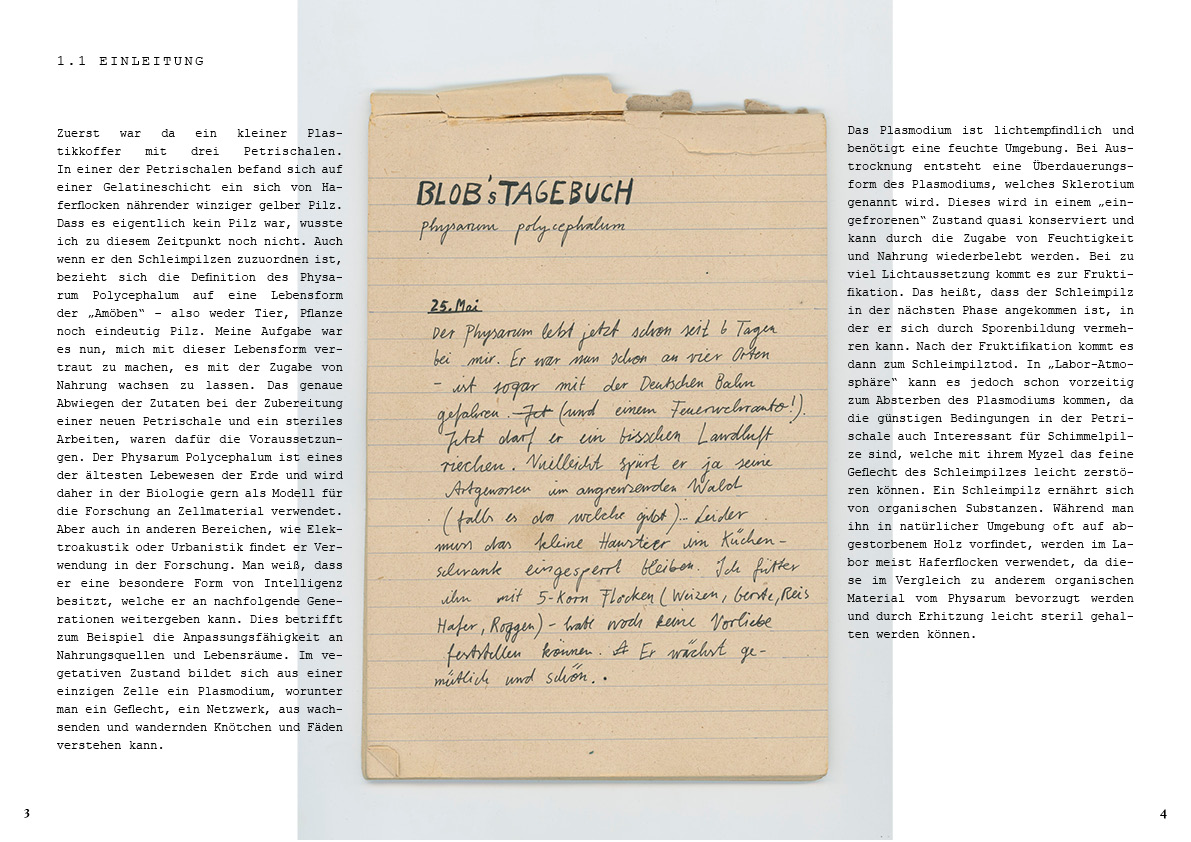 1.1 EINLEITUNG
Zuerst war da ein kleiner Plas-
tikkoffer mit drei Petrischalen.
In einer der Petrischalen befand sich auf
einer Gelatineschicht ein sich von Ha-
ferflocken nährender winziger gelber Pilz.
Dass es eigentlich kein Pilz war, wusste
ich zu diesem Zeitpunkt noch nicht. Auch
wenn er den Schleimpilzen zuzuordnen ist,
bezieht sich die Definition des Physa-
rum Polycephalum auf eine Lebensform
der „Amöben“ – also weder Tier, Pflanze
noch eindeutig Pilz. Meine Aufgabe war
es nun, mich mit dieser Lebensform ver-
traut zu machen, es mit der Zugabe von
Nahrung wachsen zu lassen. Das genaue
Abwiegen der Zutaten bei der Zubereitung
einer neuen Petrischale und ein steriles
Arbeiten, waren dafür die Voraussetzun-
gen. Der Physarum Polycephalum ist eines
der ältesten Lebewesen der Erde und wird
daher in der Biologie gern als Modell für
die Forschung an Zellmaterial verwendet.
Aber auch in anderen Bereichen, wie Elek-
troakustik oder Urbanistik findet er Ver-
wendung in der Forschung. Man weiß, dass
er eine besondere Form von Intelligenz
besitzt, welche er an nachfolgende Gene-
rationen weitergeben kann. Dies betrifft
zum Beispiel die Anpassungsfähigkeit an
Nahrungsquellen und Lebensräume. Im ve-
getativen Zustand bildet sich aus einer
einzigen Zelle ein Plasmodium, worunter
man ein Geflecht, ein Netzwerk, aus wach-
senden und wandernden Knötchen und Fäden
verstehen kann.
3
BLOB's TAGEBUCH
Physarum polycephalum
25. Mai
Der Physarum lebt jetzt schon seit 6 Tagen
bei mir. Er war nun schon an vier Orten
– ist sogar mit der Deutschen Bahn
gefahren. Jet (und einem Feuerwehrauto!).
Jetzt darf er ein bisschen Landluft
riechen. Vielleicht spürt er ja seine
Artgenossen im angrenzenden Wald
(falls es da welche gibt)... Leider
muss das kleine Haustier im Küchen-
schrank eingesperrt bleiben. Ich fütter
ihn mit 5-Korn Flocken (Weizen, Gerste, Reis
Hafer, Roggen) – habe noch keine Vorliebe
feststellen können. Er wächst ge-
mütlich und schön.
Das Plasmodium ist lichtempfindlich und
benötigt eine feuchte Umgebung. Bei Aus-
trocknung entsteht eine Überdauerungs-
form des Plasmodiums, welches Sklerotium
genannt wird. Dieses wird in einem „ein-
gefrorenen“ Zustand quasi konserviert und
kann durch die Zugabe von Feuchtigkeit
und Nahrung wiederbelebt werden. Bei zu
viel Lichtaussetzung kommt es zur Frukti-
fikation. Das heißt, dass der Schleimpilz
in der nächsten Phase angekommen ist, in
der er sich durch Sporenbildung vermeh-
ren kann. Nach der Fruktifikation kommt es
dann zum Schleimpilztod. In „Labor-Atmo-
sphäre“ kann es jedoch schon vorzeitig
zum Absterben des Plasmodiums kommen, da
die günstigen Bedingungen in der Petri-
schale auch Interessant für Schimmelpil-
ze sind, welche mit ihrem Myzel das feine
Geflecht des Schleimpilzes leicht zerstö-
ren können. Ein Schleimpilz ernährt sich
von organischen Substanzen. Während man
ihn in natürlicher Umgebung oft auf ab-
gestorbenem Holz vorfindet, werden im La-
bor meist Haferflocken verwendet, da die-
se im Vergleich zu anderem organischen
Material vom Physarum bevorzugt werden
und durch Erhitzung leicht steril gehal-
ten werden können.
4